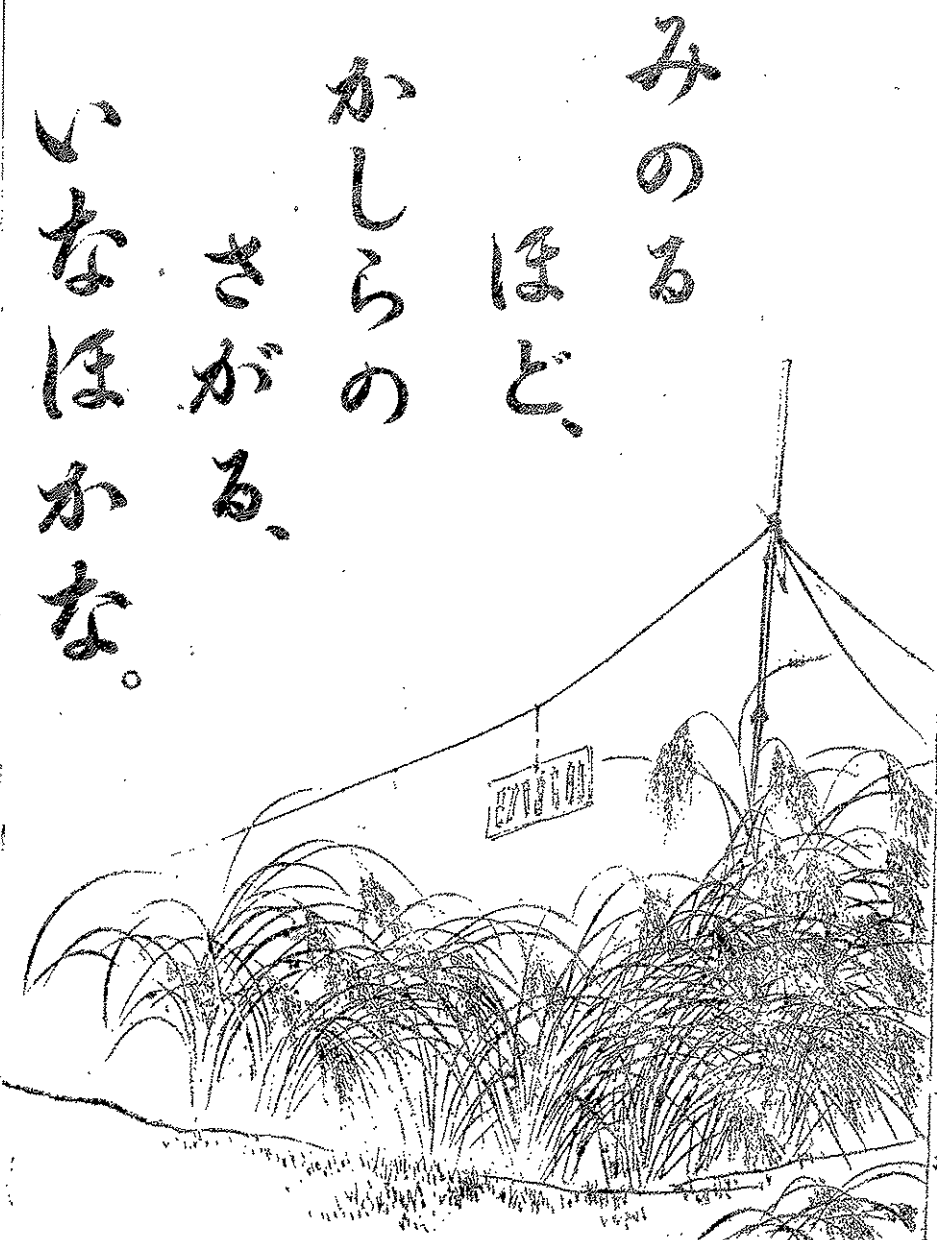 みのる
ほど、
かしらの
さがる、
いなほかな。